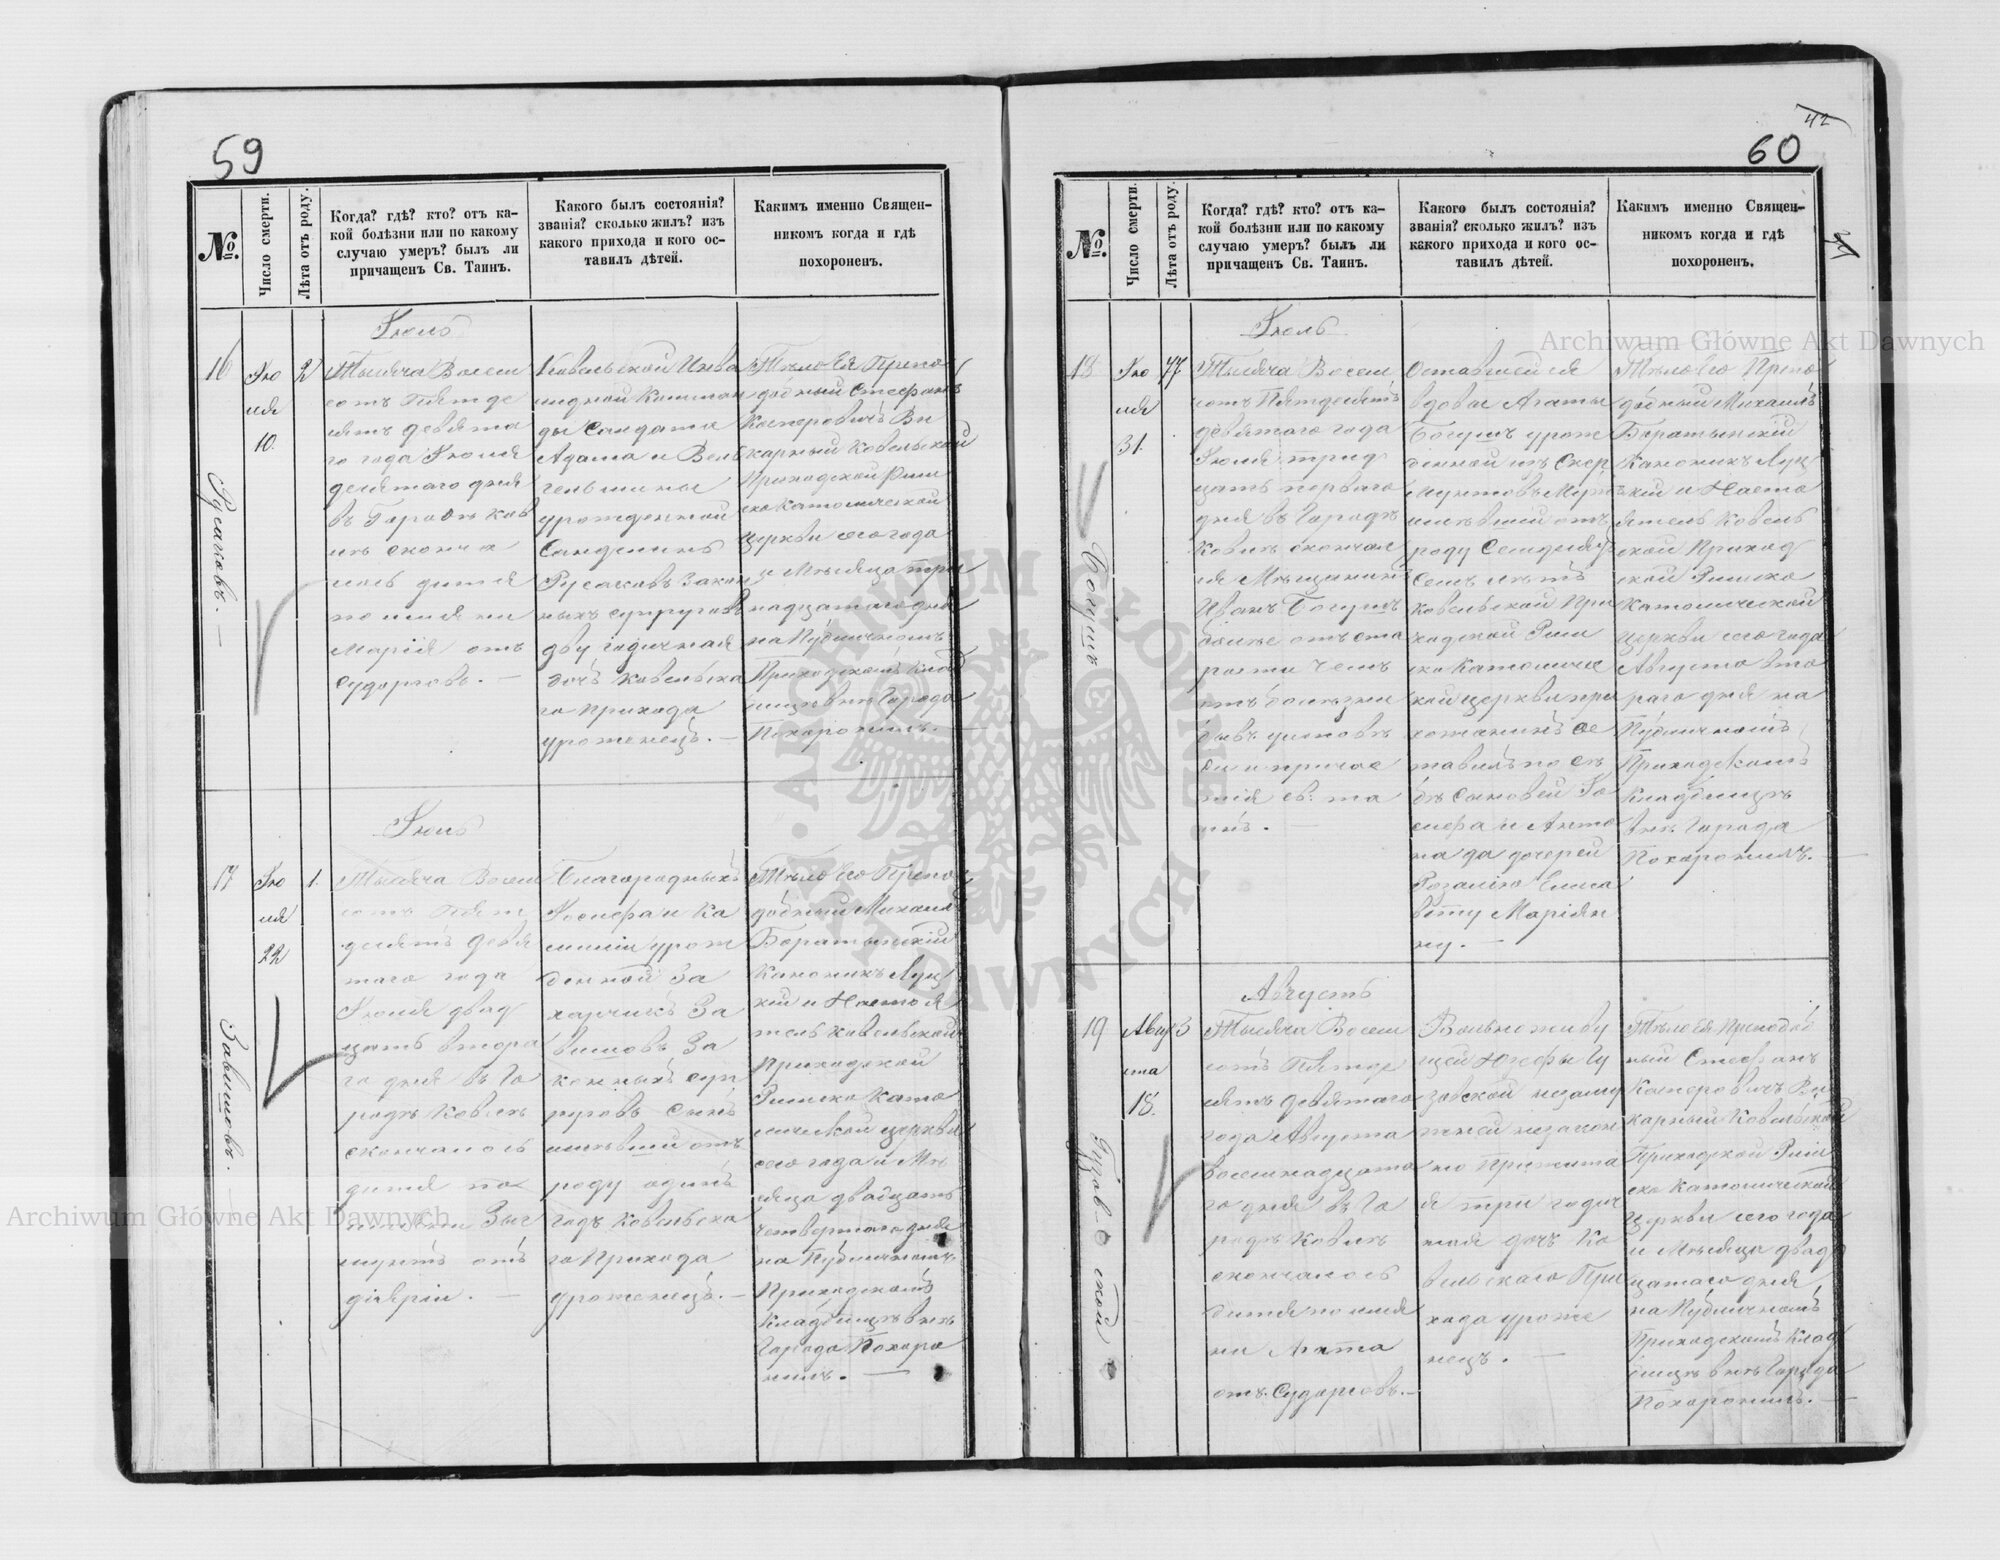 59
№.
Число смерти.
Лѣта отъ роду.
Когда? гдѣ? кто? отъ ка-
кой болѣзни или по какому
случаю умеръ? былъ ли
причащенъ Св. Таинъ.
Какого былъ состоянія?
званія? сколько жилъ? изъ
какого прихода и кого ос-
тавилъ дѣтей.
Какимъ именно Священ-
никомъ когда и гдѣ
похороненъ.
16
Русаковъ. —
Ію
ля
10.
2
Іюль
Тысяча Восем
сотъ Пятде
сятъ девята
го года Іюля
десятаго дня
въ Городѣ Ков
лѣ сконча
лось дитя
по имяни
Марія отъ
судорговъ. —
Ковельской Инва
лидной Коман
ды Солдата
Адама и Виль
гельмины
урожденной
Русаковъ Закон
ныхъ супруговъ
двугодичная
дочь Ковельска
го Прихода
уроженецъ. —
Тѣло Ея Препо
добный Стефанъ
Касперовичъ Ви
карный Ковельской
Приходской Рим
ско Католической
Церкви сего года
и Мѣсяца три
надцатаго дня
на Публичномъ
Приходскомъ Клад
бищѣ внѣ Города
Похоронилъ. —
17
Завишовъ. —
Ію
ля
22
1.
Іюль
Тысяча Восем
сотъ Пят
десятъ девя
таго года
Іюля двад
цать втора
го дня въ Го
родѣ Ковлѣ
скончалось
дитя по
имяни Зыг
мунтъ отъ
діяріи. —
Благородныхъ
Іосифа и Ка
миліи урож
денной За
харчикъ За
вишовъ За
конныхъ суп
руговъ сынъ
имѣвшій отъ
роду одинъ
годъ Ковельска
го Прихода
уроженецъ. —
Тѣло Его Препо
добный Михаилъ
Баратынскій
Каноникъ Луц
кій и Настоя
тель Ковельской
Приходской
Римско Като
лической церкви
сего года и Мѣ
сяца двадцать
четвертаго дня
на Публичномъ
Приходскомъ
Кладбищѣ внѣ
Города Похоро
нилъ. —
42
60
№.
Число смерти.
Лѣта отъ роду.
Когда? гдѣ? кто? отъ ка-
кой болѣзни или по какому
случаю умеръ? былъ ли
причащенъ Св. Таинъ.
Какого былъ состоянія?
званія? сколько жилъ? изъ
какого прихода и кого ос-
тавилъ дѣтей.
Какимъ именно Священ-
никомъ когда и гдѣ
похороненъ.
18
Богушъ
Ію
ля
31.
77
Іюль
Тысяча Восем
сотъ Пятдесятъ
девятаго года
Іюля трид
цать перваго
дня въ Городѣ
Ковлѣ скончал
ся Мѣщанинъ
Иванъ Богушъ
болѣе отъ ста
рости чемъ
отъ болѣзни
бывъ
и причас
тія св: та
инъ. —
Оставшейся
вдовы Агаты
Богушъ урож
денной изъ
Мужъ
имѣвшій отъ
роду Семдесятъ
семъ лѣтъ
Ковельской При
ходской Рим
ско Католичес
кой церкви при
хожанинъ ос
тавилъ по се
бѣ сыновей Іо
сифа и Анто
на да дочерей
Розалію Елиса
вету Маріян
ну. —
Тѣло Его Препо
добный Михаилъ
Баратынскій
Каноникъ Луц
кій и Насто
ятель Ковель
ской Приход
ской Римско
Католической
церкви сего года
Августа вто
раго дня на
Публичномъ
Приходскомъ
Кладбищѣ
внѣ Города
Похоронилъ. —
19
Гузов-
ской
Авгу
ста
18.
3
Августъ
Тысяча Восем
сотъ Пятде
сятъ девятаго
года Августа
восемнадцата
го дня въ Го
родѣ Ковлѣ
скончалось
дитя по имя
ни
отъ судорговъ. —
Вольноживу
щей Юзефы Гу
зовской незаму
жней незакон
но Прижита
я три годич
ная дочъ Ко
вельскаго При
хода уроже
нецъ. —
Тѣло Ея Преподоб
ный Стефанъ
Касперовичъ Ви
карный Ковельской
Приходской Рим
ско Католической
Церкви сего года
и Мѣсяца двад
цатаго дня
на Публичномъ
Приходскомъ Клад
бищѣ внѣ Города
Похоронилъ. —
Archiwum Główne Akt Dawnych
Archiwum Główne Akt Dawnych
ARCHIWUM GŁÓWNE AKT DAWNYCH